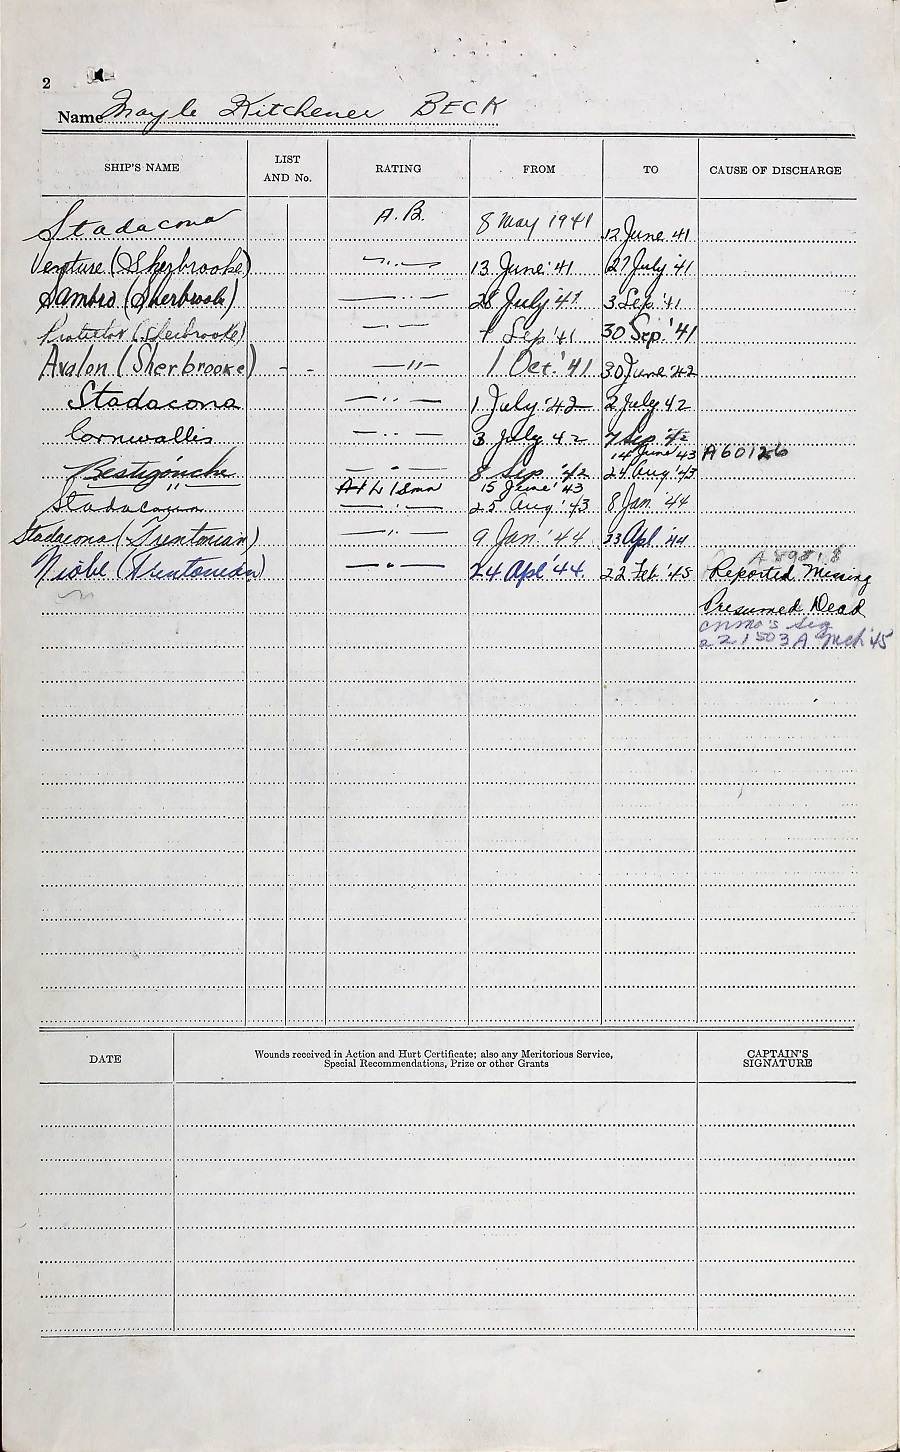 2
Name Mayle Kitchener BECK
SHIP'S NAME LIST AND No. RATING FROM TO CAUSE OF DISCHARGE
Stadacona A.B. 8 May 1941 12 June 41
Venture (Sherbrooke) —..— 13 June '41 27 July '41
Sambro (Sherbrooke) —..— 28 July '41 3 Sep. '41
Protector (Sherbrooke) —..— 4 Sep '41 30 Sep. '41
Avalon (Sherbrooke) - - —"— 1 Oct. '41 30 June '42
Stadacona —..— 1 July '42 2 July 42
Cornwallis —..— 3 July 42 7 Sep '42
14 June '43 A60126
Restigouche —"— 8 Sep '42 24 Aug '43
" 15 June '43
Stadacona —..— 25 Aug '43 8 Jan '44
Stadacona (Trentonian) —..— 9 Jan. '44 23 Apl '44
Niobe (Trentonian) —"— 24 Apl '44 22 Feb '45 Reported Missing
Presumed Dead
Sig
221503A Mch '45
DATE Wounds received in Action and Hurt Certificate; also any Meritorious Service, CAPTAIN'S
Special Recommendations, Prize or other Grants SIGNATURE